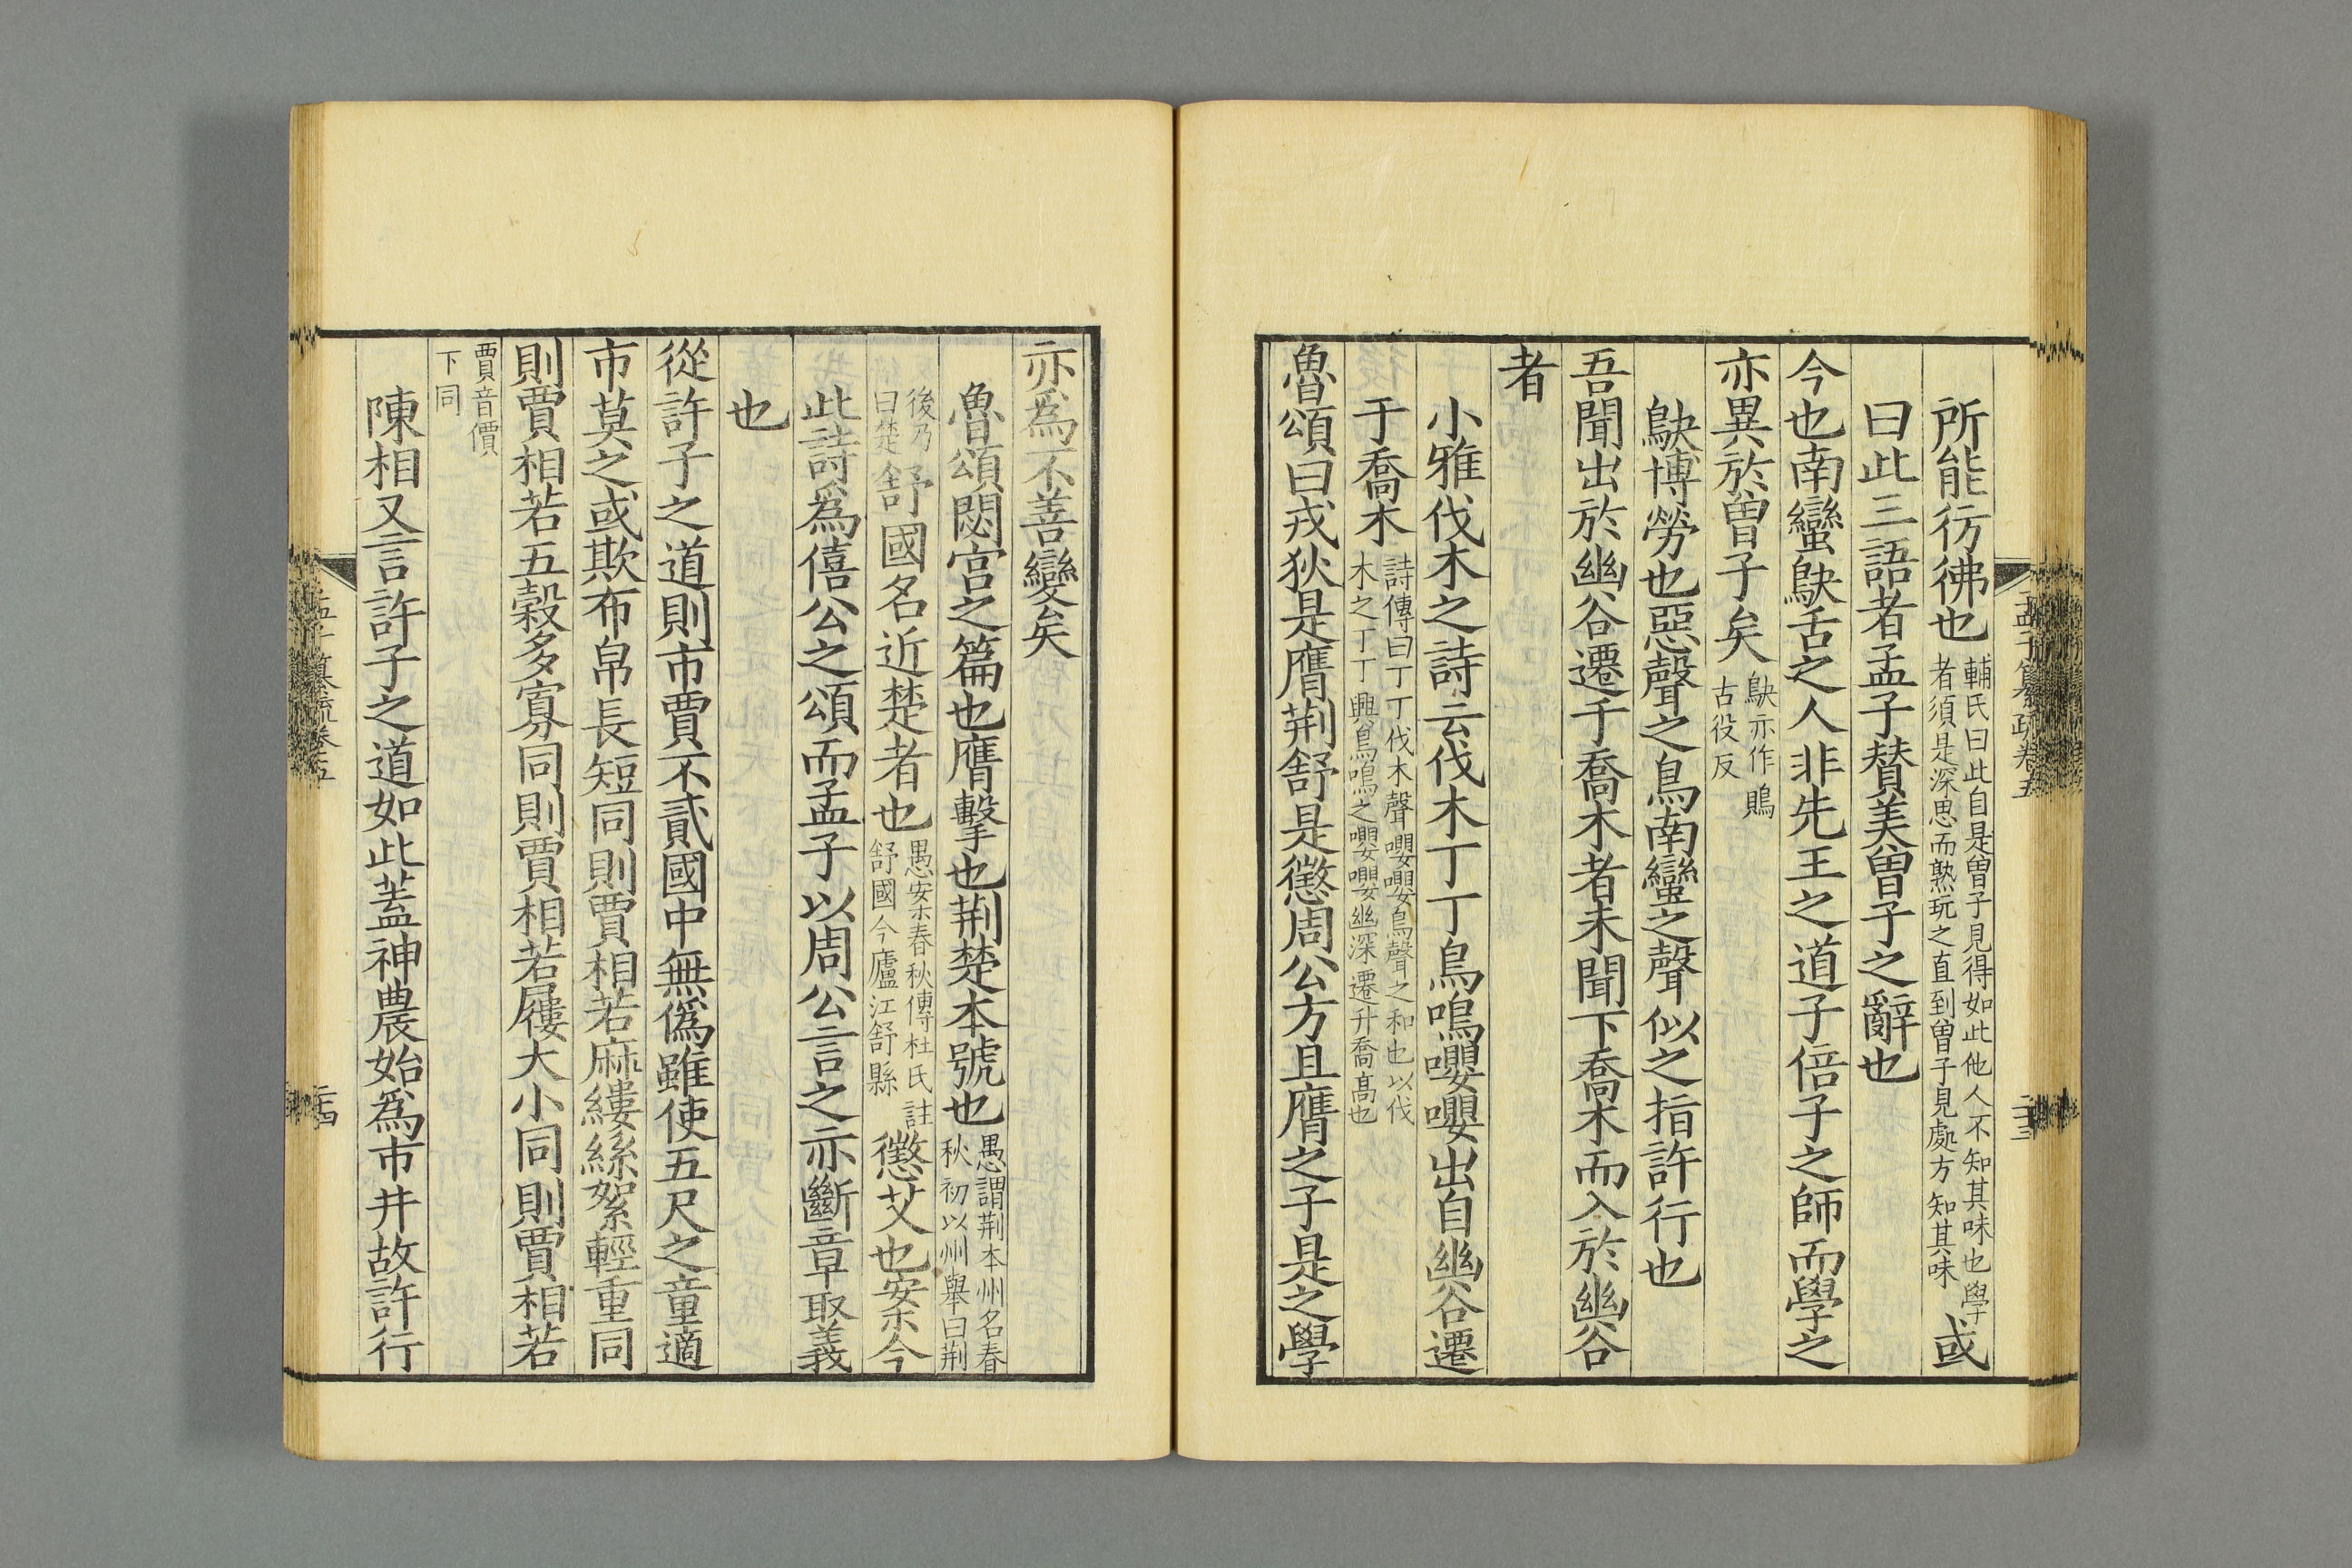 所能彷彿也輔氏曰此自是曽子見得如此他人不知其味也學者須是深思而熟玩之直到曽子見處方知其味或
曰此三語者孟子賛美曽子之辭也
今也南蠻鴃舌之人非先王之道子倍子之師而學之
亦異於曽子矣鴃亦作鵙古役反
鴃博勞也惡聲之鳥南蠻之聲似之指許行也
吾聞出於幽谷遷于喬木者未聞下喬木而入於幽谷
者
小雅伐木之詩云伐木丁丁鳥鳴嚶嚶出自幽谷遷
于喬木詩傳曰丁丁伐木聲嚶嚶鳥聲之和也以伐木之丁丁興鳥鳴之嚶嚶幽深遷升喬髙也
魯頌曰戎狄是膺荆舒是懲周公方且膺之子是之學
孟子纂疏卷五
二十三
亦爲不善變矣
魯頌閟宫之篇也膺擊也荆楚本號也愚謂荆本州名春秋初以州舉曰荆
後乃曰楚舒國名近楚者也愚案春秋傳杜氏註舒國今廬江舒縣懲艾也案今
此詩爲僖公之頌而孟子以周公言之亦斷章取義
也
從許子之道則市賈不貳國中無僞雖使五尺之童適
市莫之或欺布帛長短同則賈相若麻縷絲絮輕重同
則賈相若五穀多寡同則賈相若屨大小同則賈相若
賈音價下同
陳相又言許子之道如此葢神農始爲市井故許行
孟子纂疏卷五
二十四